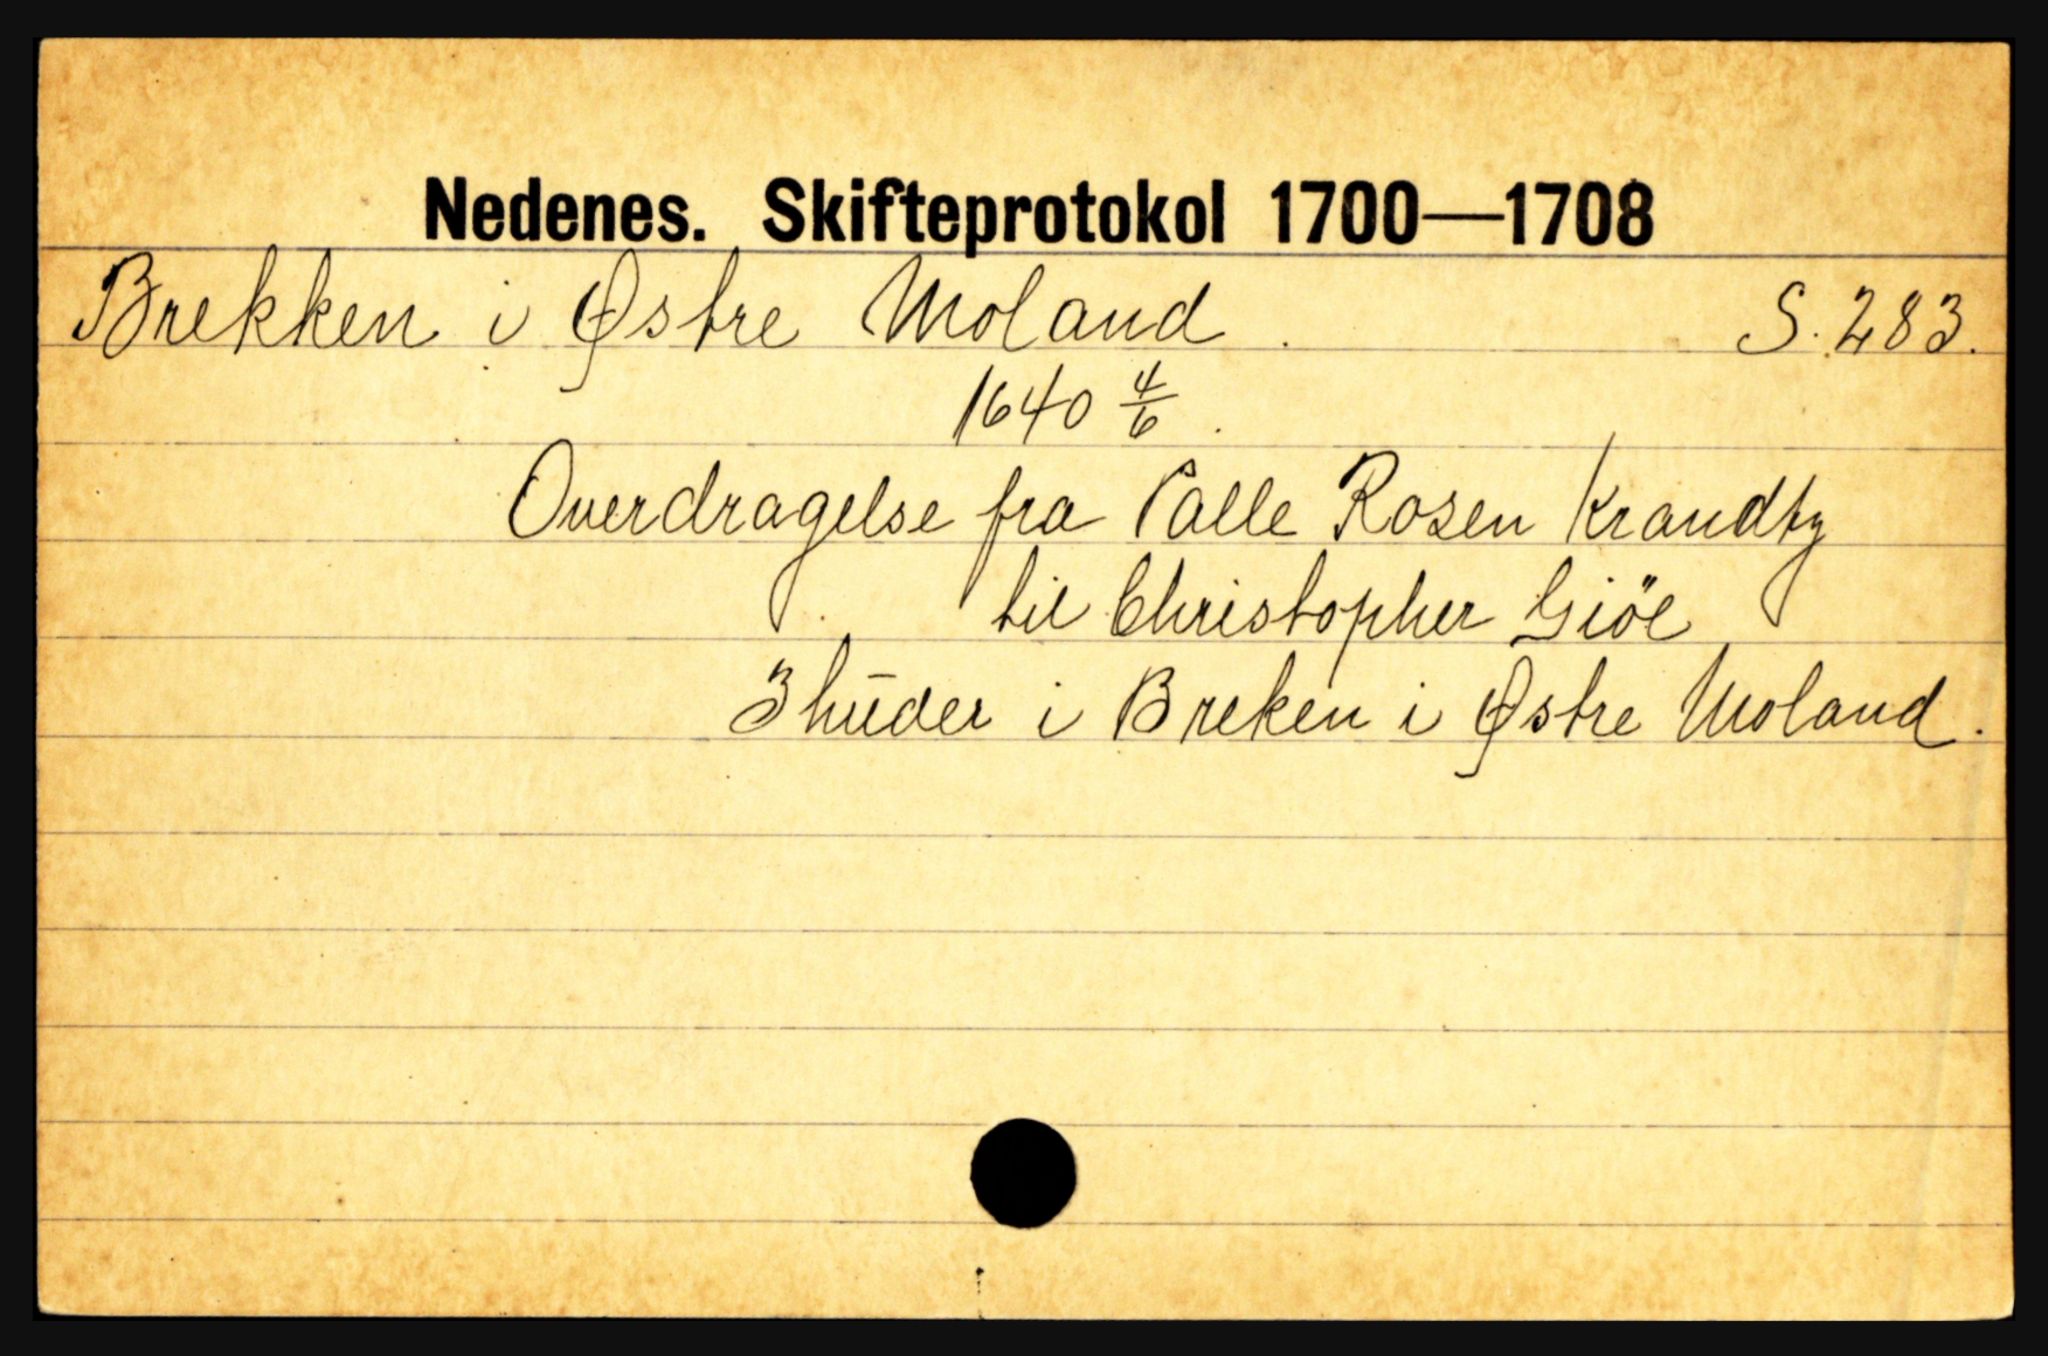 Nedenes. Skifteprotokol 1700—1708
Brekken i Østre Moland. S. 283.
1640 4/6.
Overdragelse fra Palle Rosen Krandtz
til Christopher Giöe
3 huder i Breken i Østre Moland.